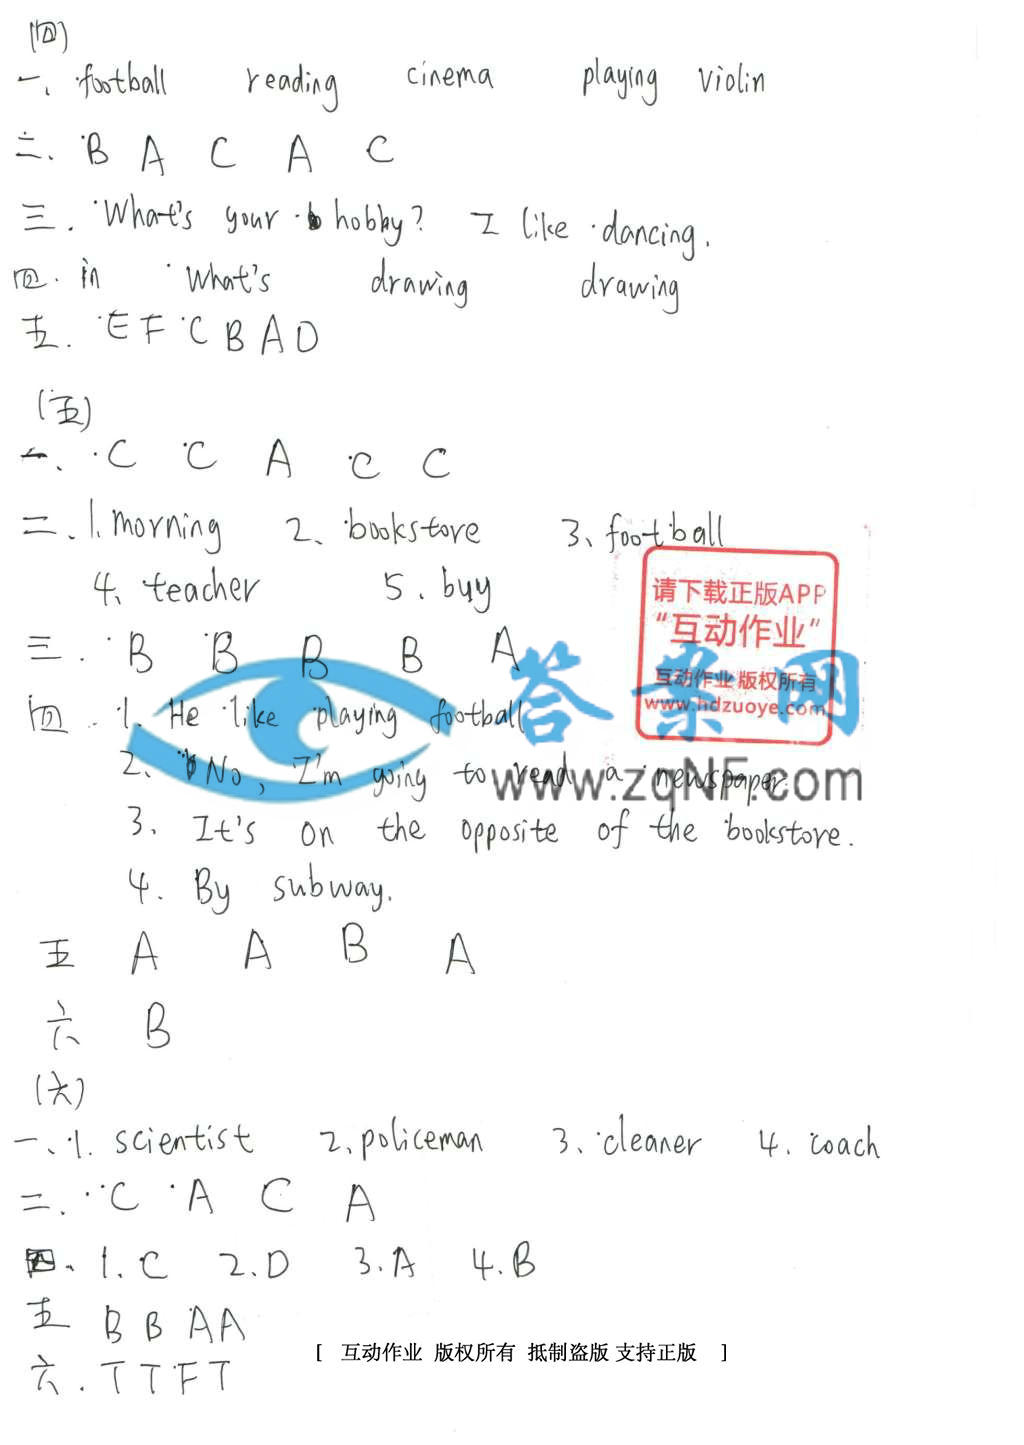 (四)
一、football reading cinema playing violin
二、B A C A C
三. What's your hobby? I like dancing.
四. in What's drawing drawing
五. E F C B A D
(五)
一、C C A C C
二、1. morning 2、bookstore 3、football
4、teacher 5. buy
三. B B B B A
四. 1. He like playing football
2、No, I'm going to read a newspaper.
3. It's on the opposite of the bookstore.
4. By subway.
五 A A B A
六 B
(六)
一、1. scientist 2、policeman 3、cleaner 4. coach
二. C A C A
四、1. C 2. D 3. A 4. B
五 B B A A
六. T T F T
请下载正版APP
“互动作业”
互动作业 版权所有
www.hdzuoye.com
答案网
www.zqNF.com
[ 互动作业 版权所有 抵制盗版 支持正版 ]